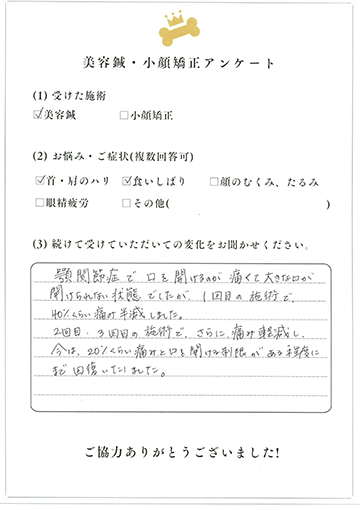 美容鍼・小顔矯正アンケート
(1) 受けた施術
☑美容鍼 □小顔矯正
(2) お悩み・ご症状(複数回答可)
☑首・肩のハリ ☑食いしばり □顔のむくみ、たるみ
□眼精疲労 □その他( )
(3) 続けて受けていただいての変化をお聞かせください。
顎関節症で口を開けるのが痛くて大きな口が
開けられない状態でしたが、1回目の施術で、
40%くらい痛み半減しました。
2回目、3回目の施術で、さらに痛み軽減し、
今は、20%くらい痛みと口を開ける制限がある程度に
まで回復いたしました。
ご協力ありがとうございました!